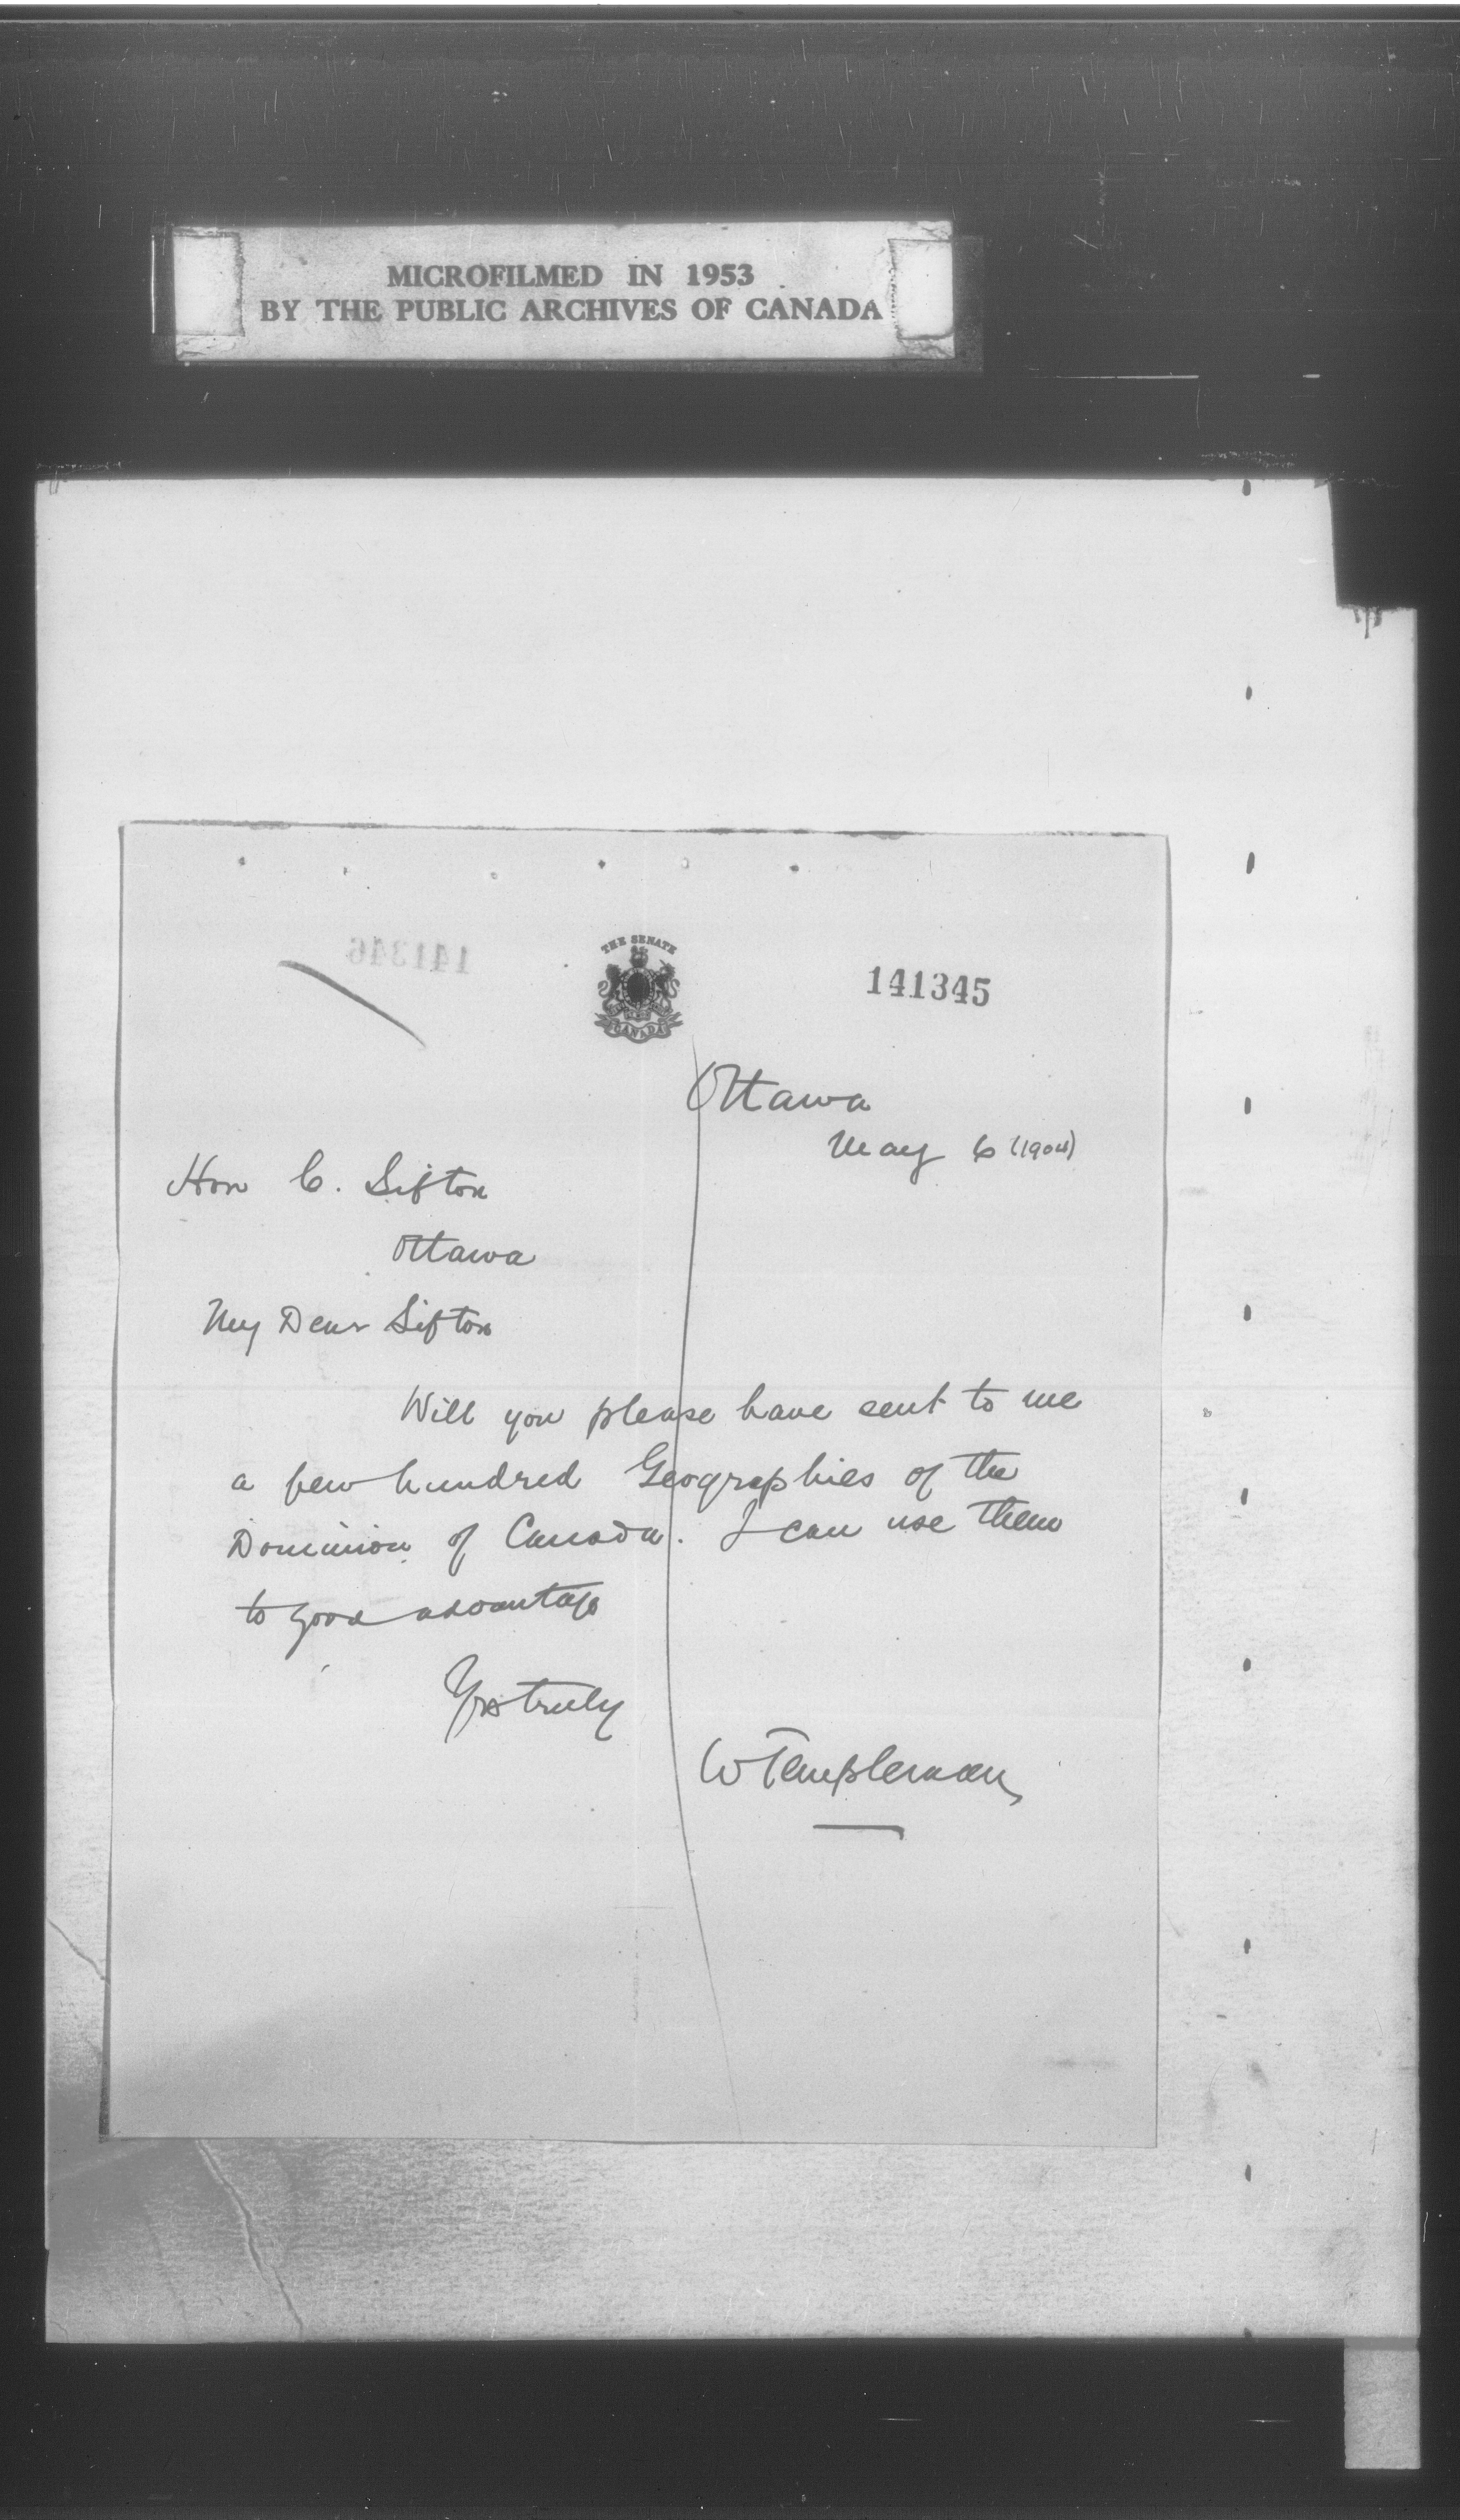 MICROFILMED IN 1953
BY THE PUBLIC ARCHIVES OF CANADA
141346
THE SENATE
CANADA
141345
Ottawa
May 6 (1904)
Hon C. Sifton
Ottawa
My Dear Sifton
Will you please have sent to me
a few hundred Geographies of the
Dominion of Canada. I can use them
to good advantage
Yrs truly
W Templeman